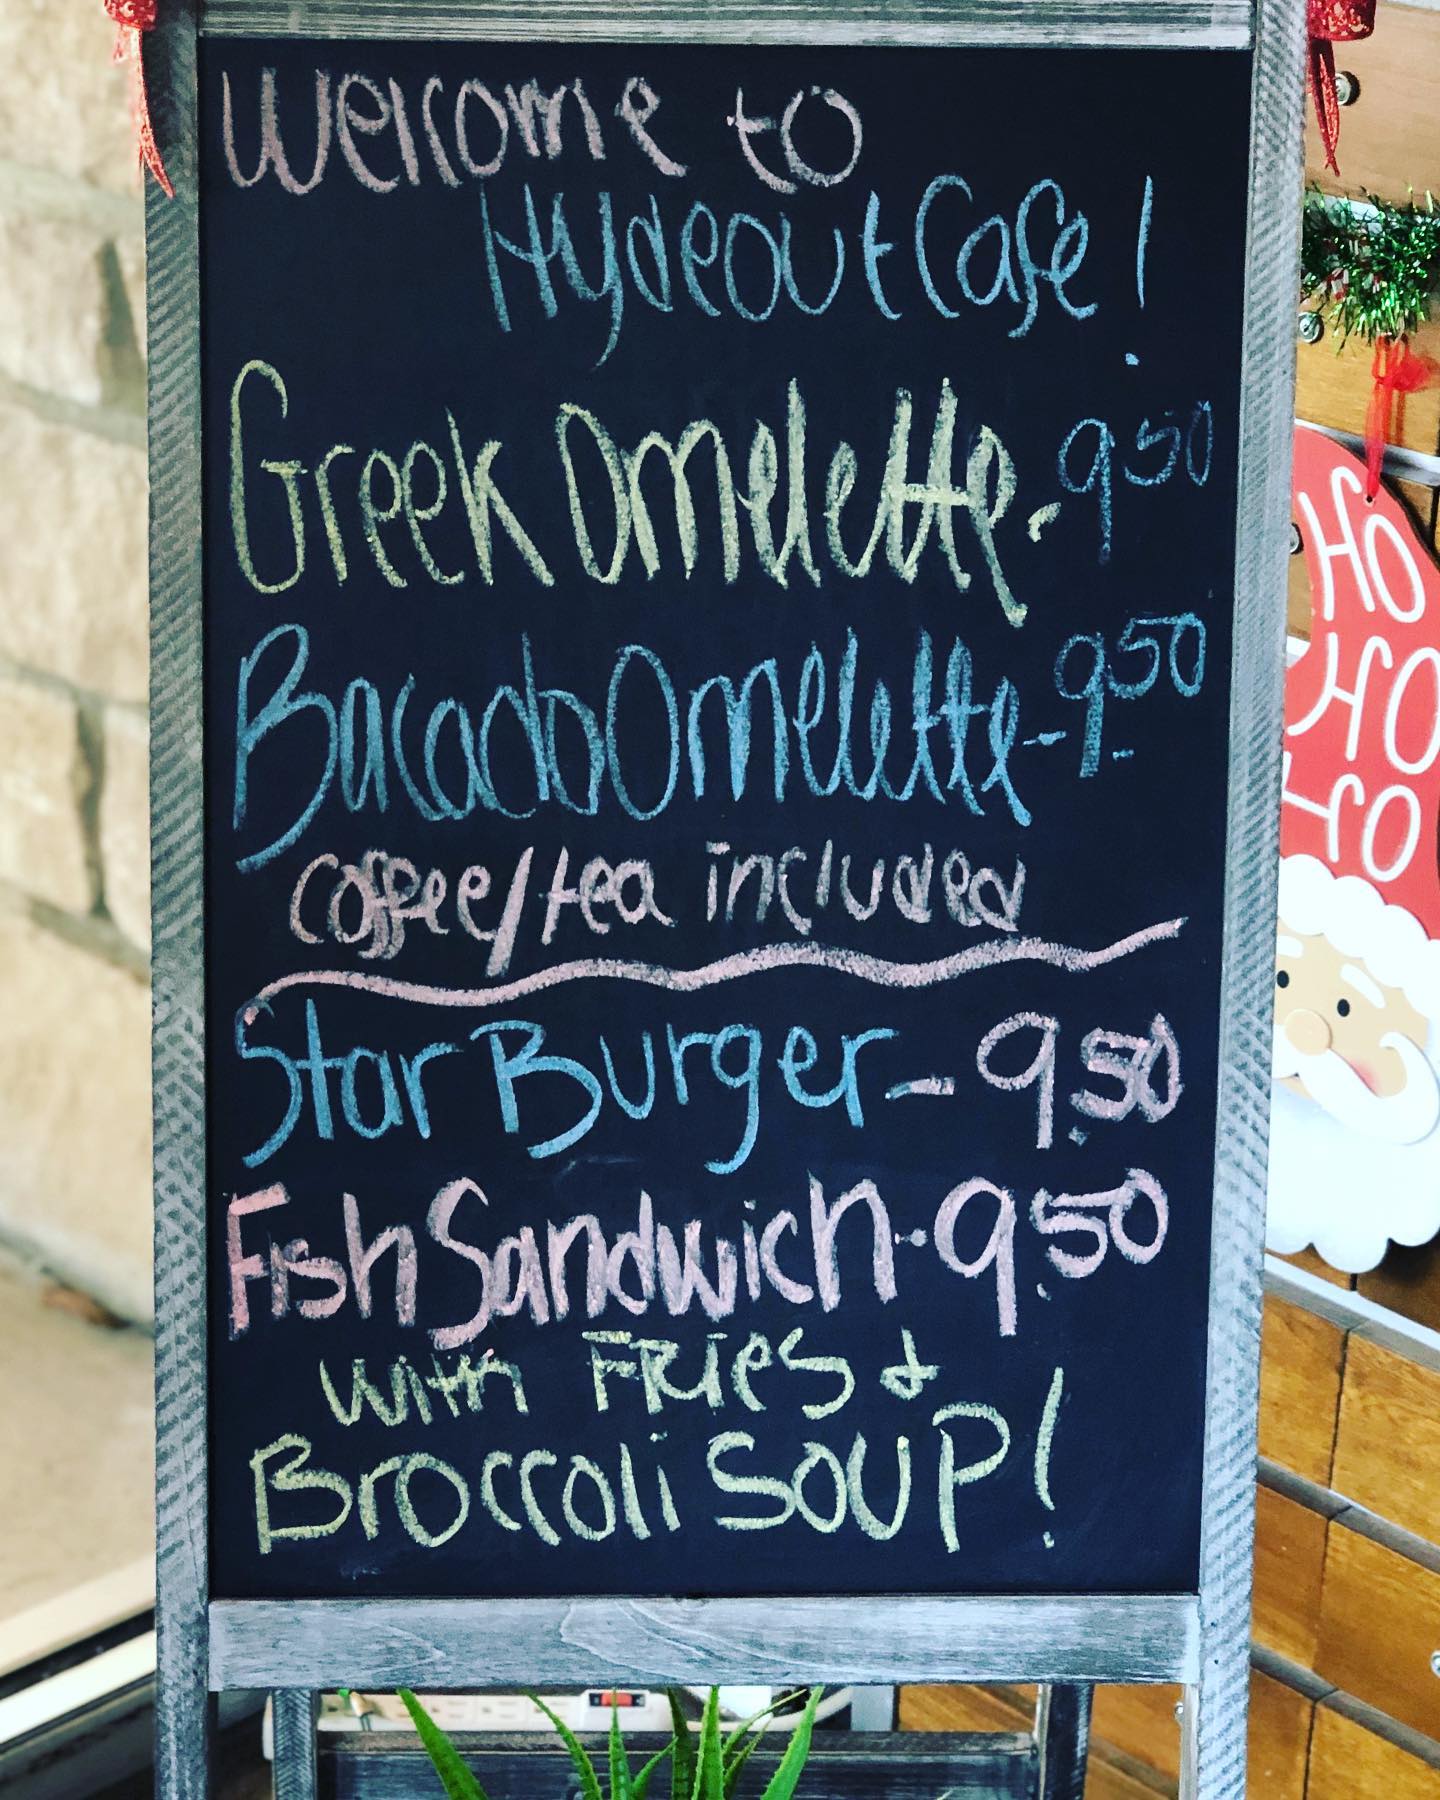 Welcome to
Hydeout Cafe!
Greek Omelette - 9.50
Bacado Omelette - 9.50
coffee/tea included
Star Burger - 9.50
Fish Sandwich - 9.50
with FRIES &
Broccoli SOUP!
HO
HO
HO